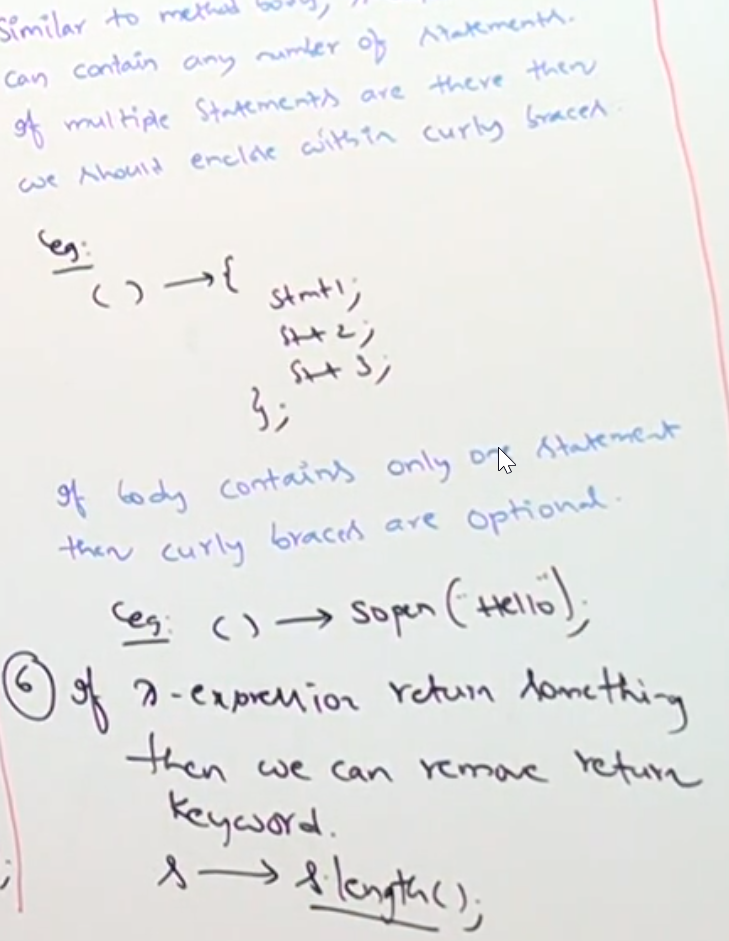 Similar to method body,
can contain any number of statements.
If multiple statements are there then
we should enclose within curly braces.
eg:
( ) → {
stmt1;
stt 2;
stt 3;
};
If body contains only one statement
then curly braces are optional.
eg: ( ) → sopln ("Hello");
⑥ If λ-expression return something
then we can remove return
keyword.
s → s.length();
;